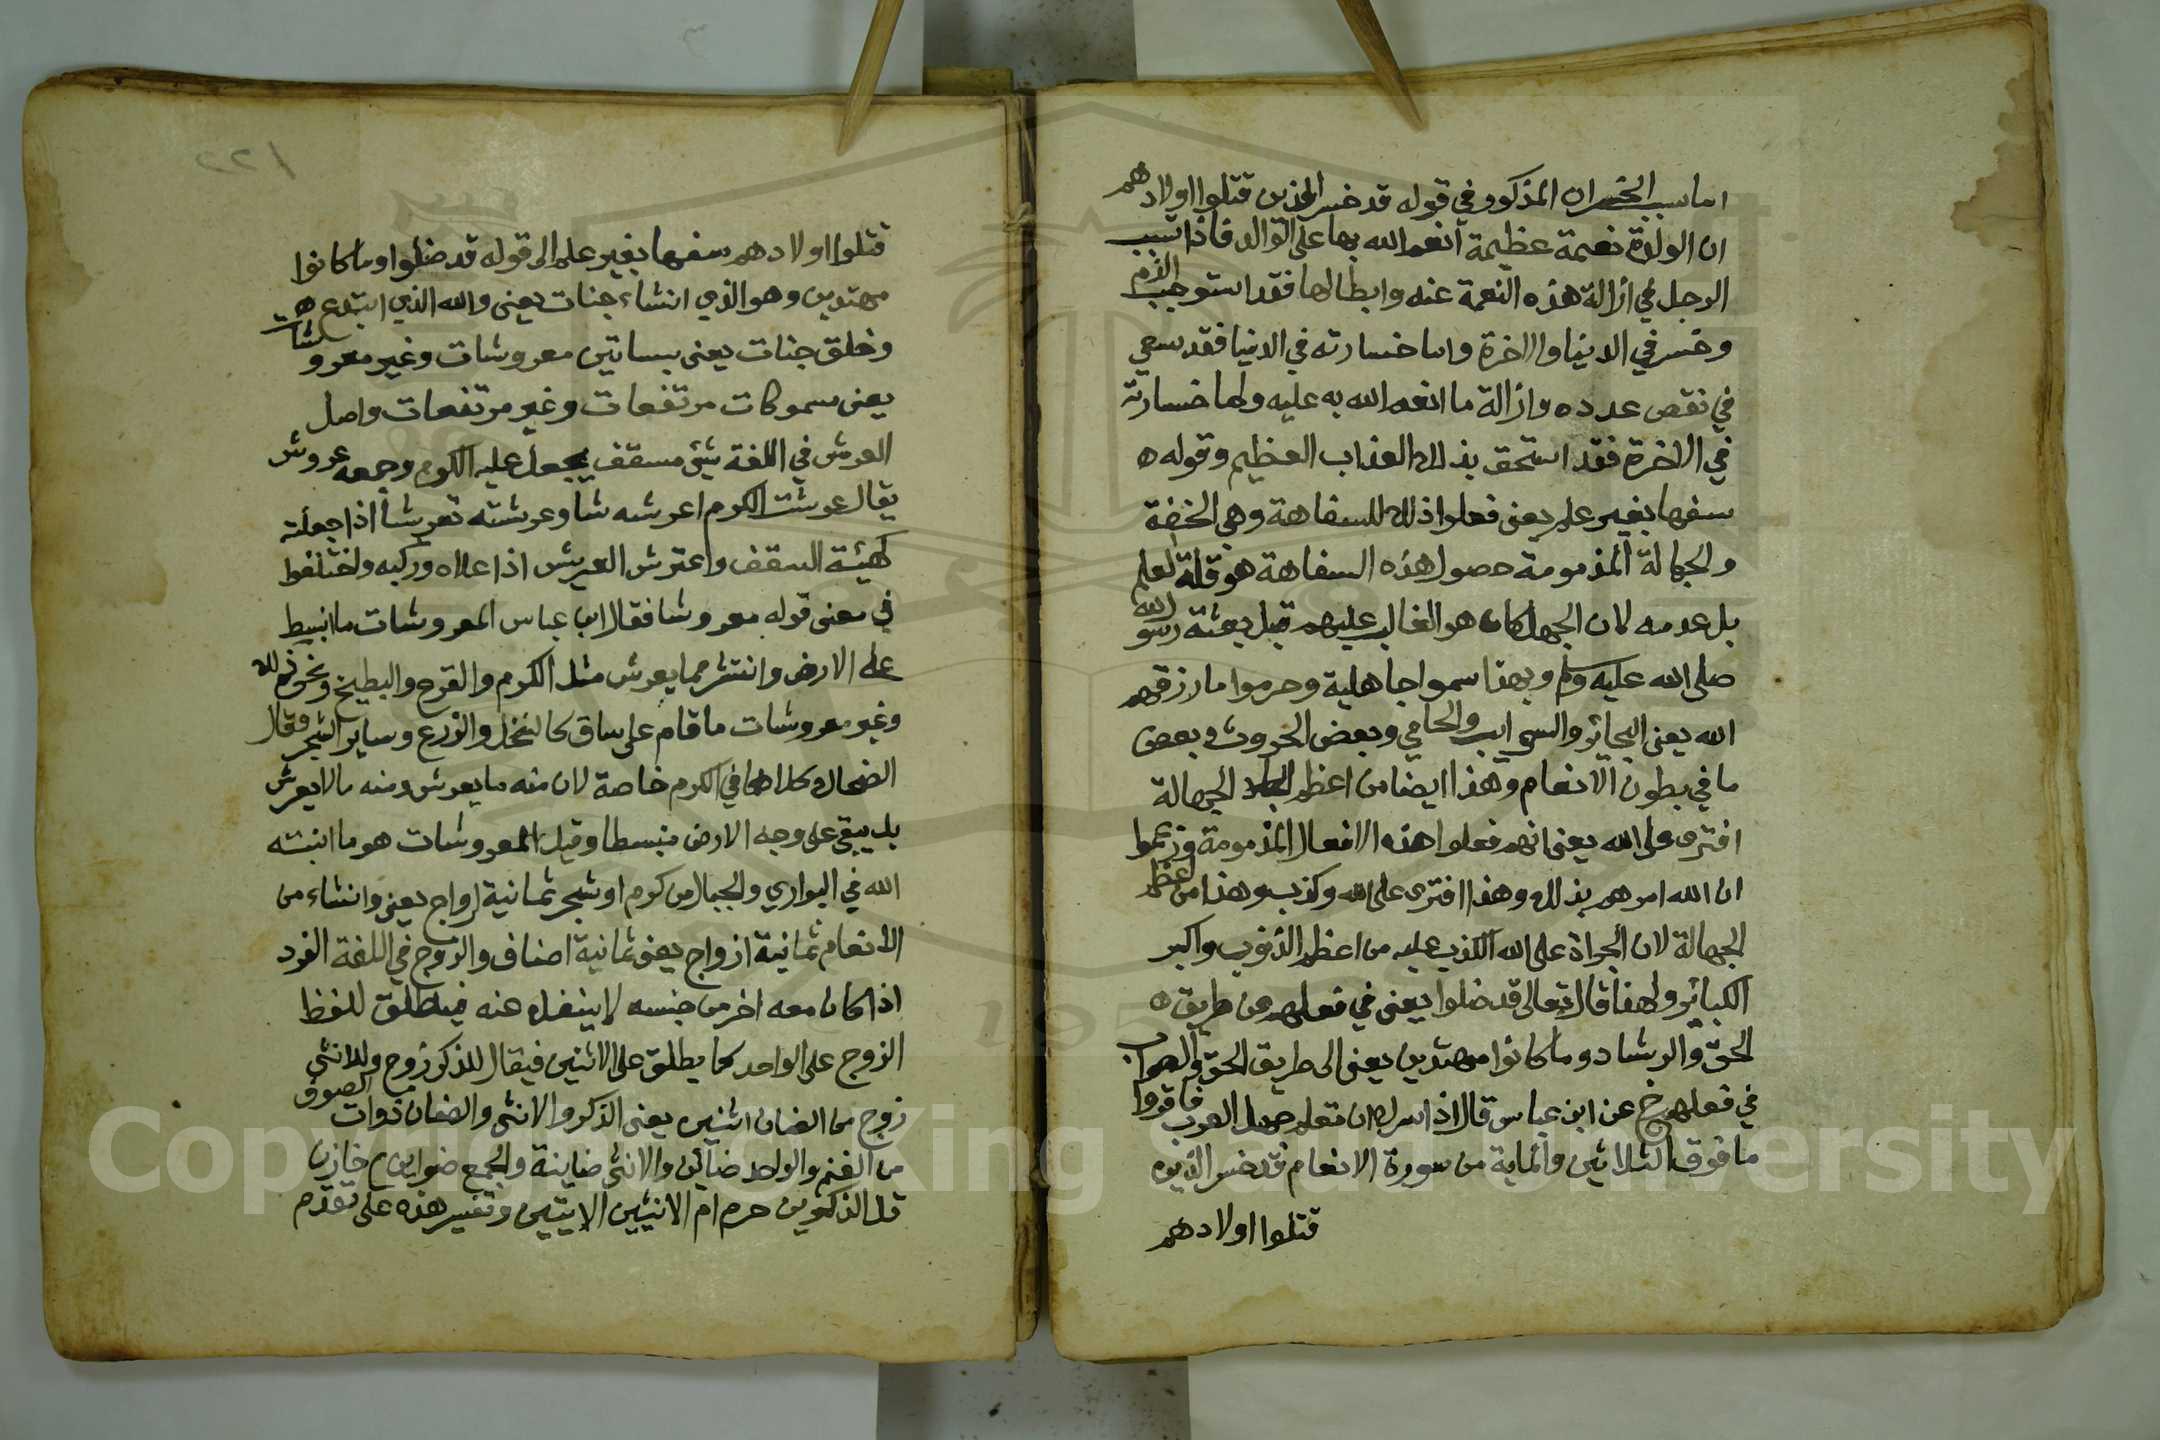 اما سبب الخسران المذكور في قوله قد خسر الذين قتلوا اولادهم
ان الولادة نعيمة عظيمة انعم الله بها على الوالد فاذا تسبب
الرجل في ازالة هذه النعمة عنه وابطالها فقد استوجب الذم
وخسر في الدنيا والاخرة واما خسارته في الدنيا فقد سعي
في نقص عدده وازالة ما انعم الله به عليه واما خسارته
في الاخرة فقد استحق بذلك العذاب العظيم وقوله ه
سفها بغير علم يعنى فعلوا ذلك للسفاهة وهى الخفة
والجهالة المذمومة حصول هذه السفاهة هو قلة لعلم
بل عدمه لان الجهل كان هو الغالب عليهم قبل بعثة رسو الله
صلى الله عليه وسلم وبهذا سموا جاهلية وحرموا ما رزقهم
الله يعنى البحائر والسوايب والحامي وبعض الحروث وبعض
ما في بطون الانعام وهذا ايضا من اعظم الجهالة
افترى على الله يعنى انهم فعلوا هذه الافعال المذمومة وزعموا
ان الله امرهم بذلك وهذا افترى على الله وكذب وهذا من اعظم
الجهالة لان الجراة على الله الكذب عليه من اعظم الذنوب واكبر
الكبائر ولهذا قال تعالى قد ضلوا يعنى في فعلهم عن طريق ه
الحق والرشاد وما كانوا مهتدين يعنى الى طريق الحق والصواب
في فعلهم خ عن ابن عباس قال اذا سرك ان تعلم جهل العرب فاقروا
ما فوق الثلاثين والماية من سورة الانعام قد خسر الذين
قتلوا اولادهم
٢٢١
قتلوا اولادهم سفها بغير علم الى قوله قد ضلوا وما كانوا
مهتدين وهو الذي انشاء جنات يعنى والله الذي ابتدع ه
وخلق جنات يعنى بساتين معروشات وغير معروشات
يعنى سموكات مرتفعات وغير مرتفعات واصل
العرش في اللغة شئ مسقف يجعل عليه الكرم وجمعه عروش
يقال عرشت الكرم اعرشه شا وعرشته تعرشا اذا جعلته
كهيئة السقف واعترش العريش اذا علاه وركبه واختلفوا
في معنى قوله معروشا فقال ابن عباس المعروشات ما انبسط
على الارض وانتشر مما يعرش مثل الكرم والقرع والبطيخ ونحو ذلك
وغير معروشات ما قام على ساق كالنخل والزرع وساير الشجر وقال
الضحاك كلاهما في الكرم خاصة لان منه ما يعرش ومنه ما لا يعرش
بل يبقى على وجه الارض منبسطا وقيل المعروشات هو ما انبته
الله في البواري والجبال من كرم او شجر ثمانية ازواج يعنى وانشاء من
الانعام ثمانية ازواج يعنى ثمانية اصناف والزوج في اللغة الفرد
اذا كان معه اخر من جنسه لا ينفك عنه فيطلق للفظ
الزوج على الواحد كما يطلق على الاثنين فيقال للذكر زوج وللانثى
زوج من الضان اثنين يعنى الذكر والانثى والضان ذوات الصوف
من الغنم والواحد ضائن والانثى ضاينة والجمع ضواين خازن
قل الذكرين حرم ام الانثيين الايتين وتفسير هذه على تقدم
Copyright © King Saud University